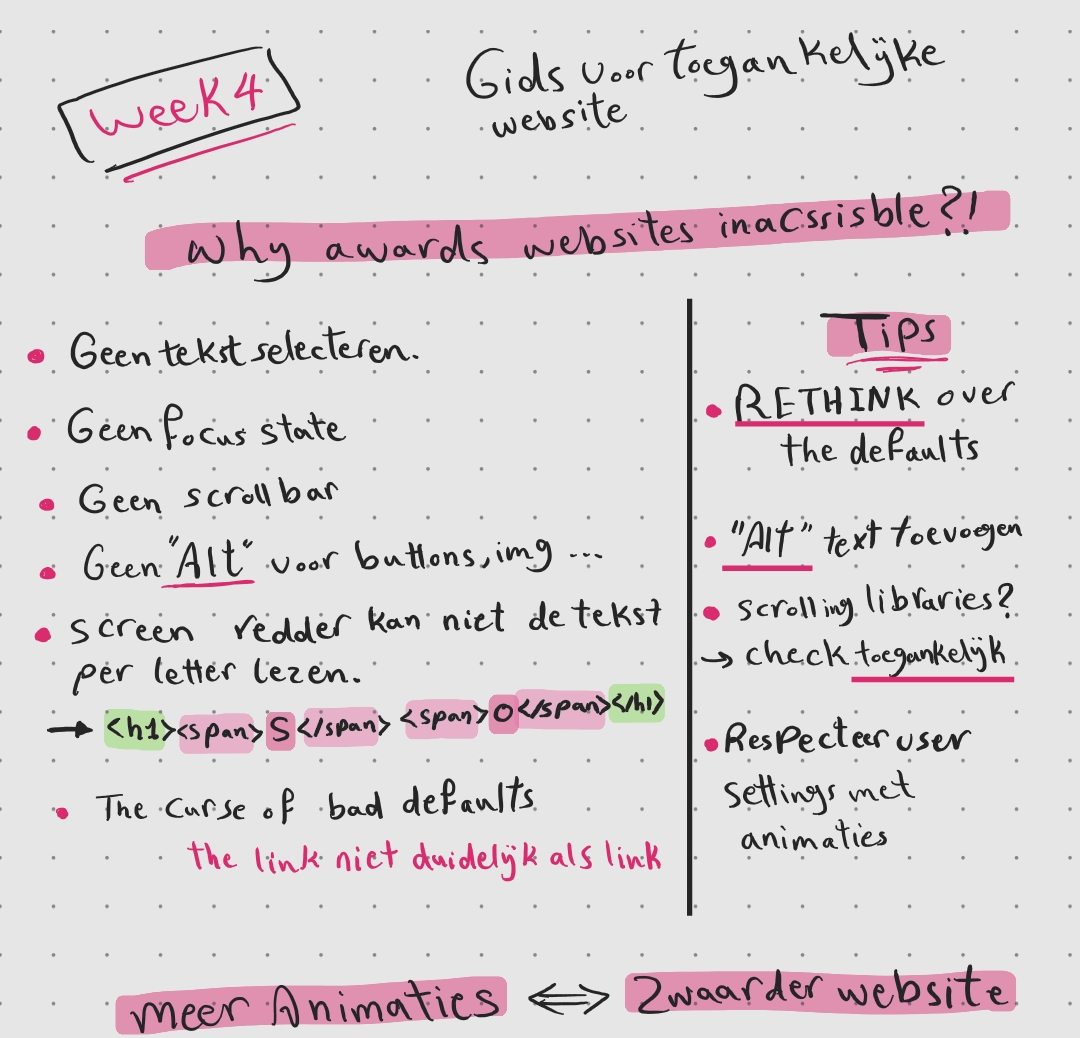 Week 4
Gids voor toegankelijke
website
Why awards websites inacsrisble?!
Geen tekst selecteren.
Geen focus state
Geen scrollbar
Geen "Alt" voor buttons, img ...
screen redder kan niet de tekst
per letter lezen.
→ <h1><span>S</span> <span>O</span></h1>
The curse of bad defaults
the link niet duidelijk als link
Tips
RETHINK over
the defaults
"Alt" text toevoegen
scrolling libraries?
→ check toegankelijk
Respecteer user
settings met
animaties
meer Animaties ⟺ Zwaarder website